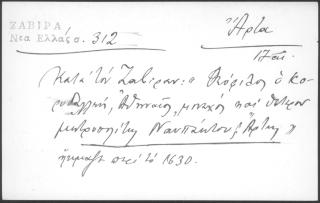 ΖΑΒΙΡΑ,
Νεα Ελλάς σ. 312
Άρτα
17 αι.
Κατά τόν Ζαβίραν: ο Θεόφιλος ὁ Κο-
Ἀθηναῖος, μοναχός καί ὕστερον
μητροπολίτης Ναυπάκτου & Ἄρτης
ἤκμαζε περί τό 1630.